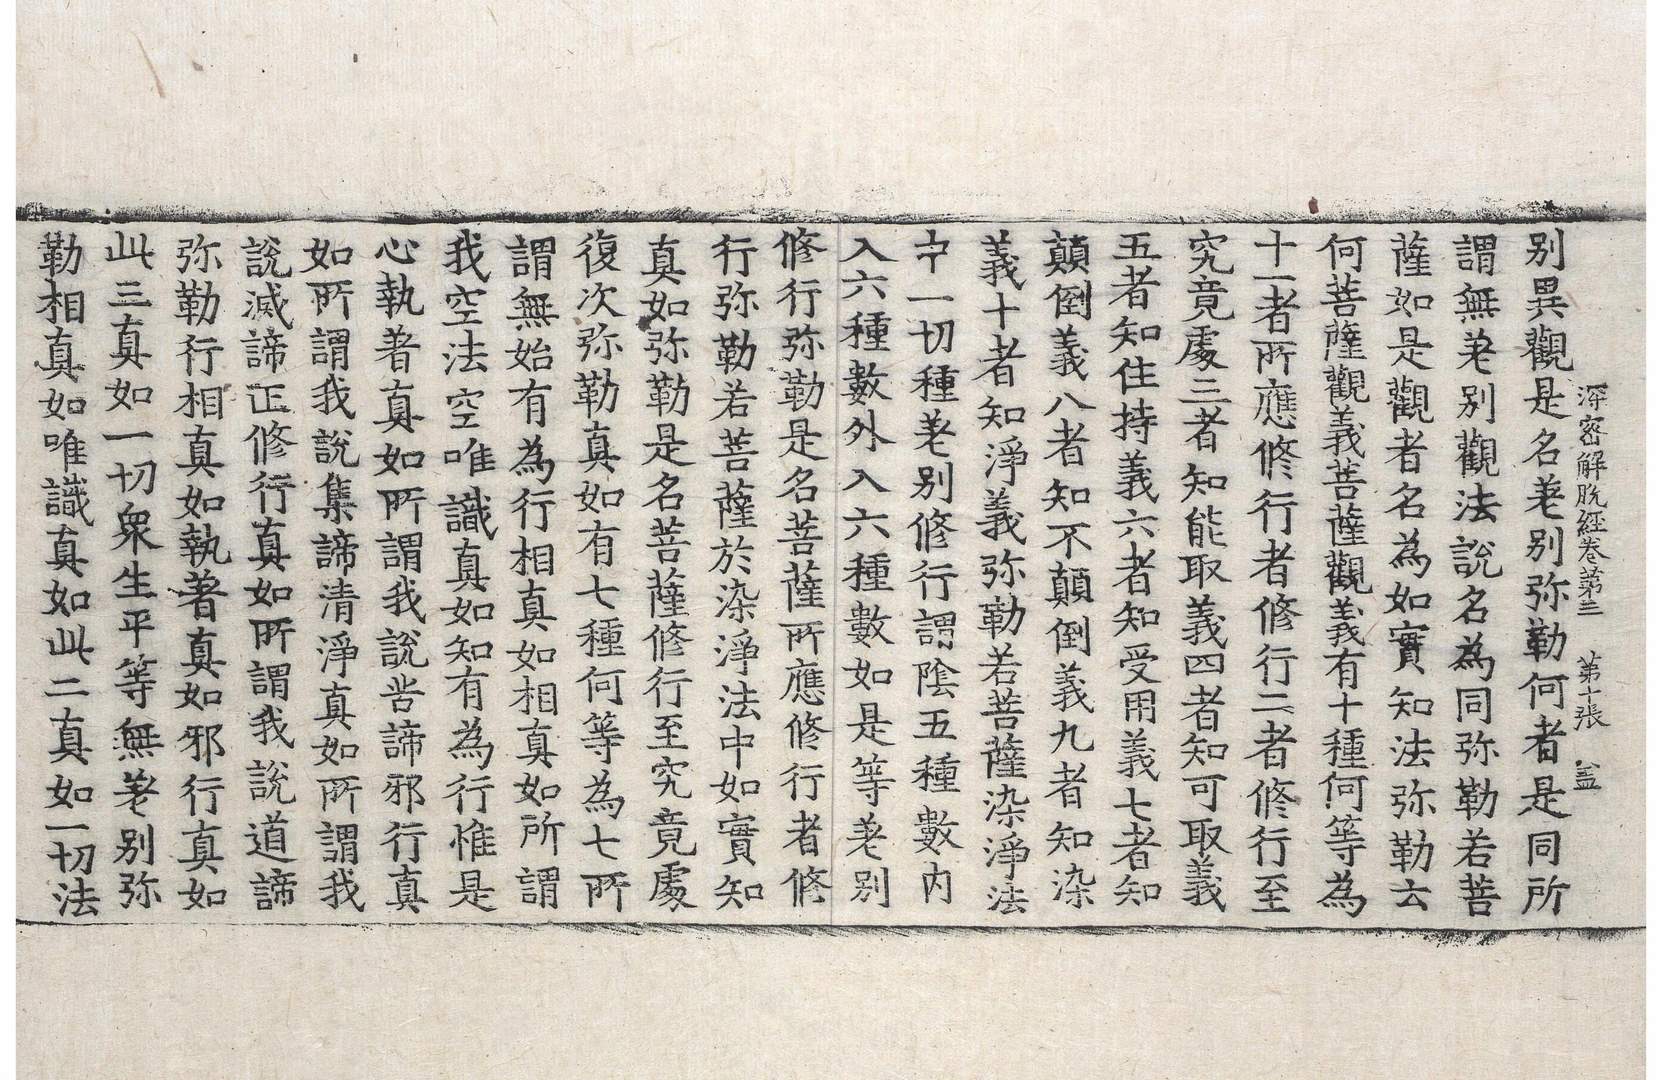 深密解脫經卷第三　第十張　盖
別異觀是名差別弥勒何者是同所
謂無差別觀法說名為同弥勒若菩
薩如是觀者名為如實知法弥勒云
何菩薩觀義菩薩觀義有十種何等為
十一者所應修行者修行二者修行至
究竟處三者知能取義四者知可取義
五者知住持義六者知受用義七者知
顛倒義八者知不顛倒義九者知染
義十者知淨義弥勒若菩薩染淨法
中一切種差別修行謂陰五種數内
入六種數外入六種數如是等差別
修行弥勒是名菩薩所應修行者修
行弥勒若菩薩於染淨法中如實知
真如弥勒是名菩薩修行至究竟處
復次弥勒真如有七種何等為七所
謂無始有為行相真如相真如所謂
我空法空唯識真如知有為行惟是
心執著真如所謂我說苦諦邪行真
如所謂我說集諦清淨真如所謂我
說滅諦正修行真如所謂我說道諦
弥勒行相真如執著真如邪行真如
此三真如一切衆生平等無差別弥
勒相真如唯識真如此二真如一切法